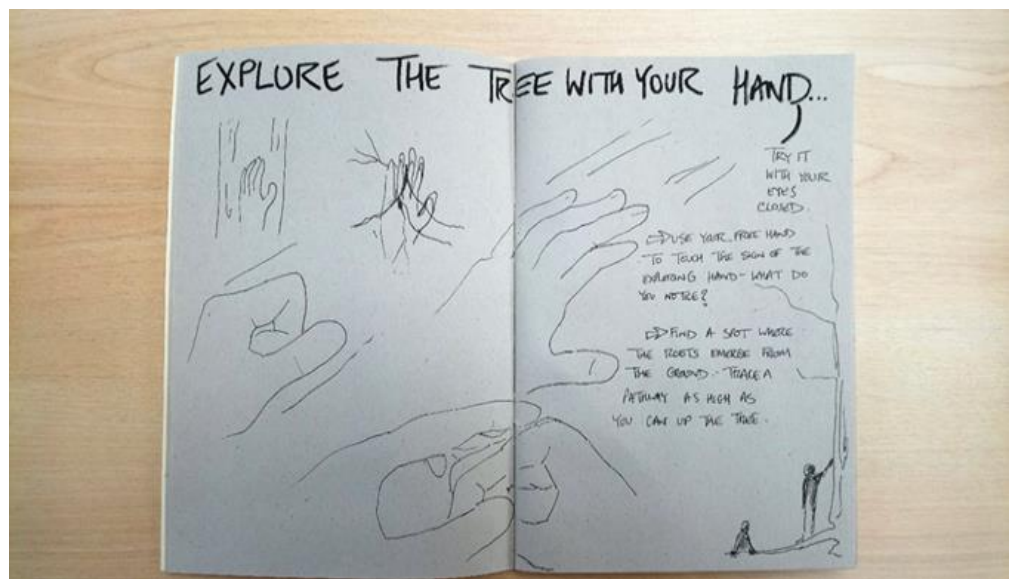 EXPLORE THE TREE WITH YOUR HAND...
TRY IT
WITH YOUR
EYES
CLOSED.
USE YOUR FREE HAND
TO TOUCH THE SKIN OF THE
EXPLORING HAND - WHAT DO
YOU NOTICE?
FIND A SPOT WHERE
THE ROOTS EMERGE FROM
THE GROUND. TRACE A
PATHWAY AS HIGH AS
YOU CAN UP THE TREE.